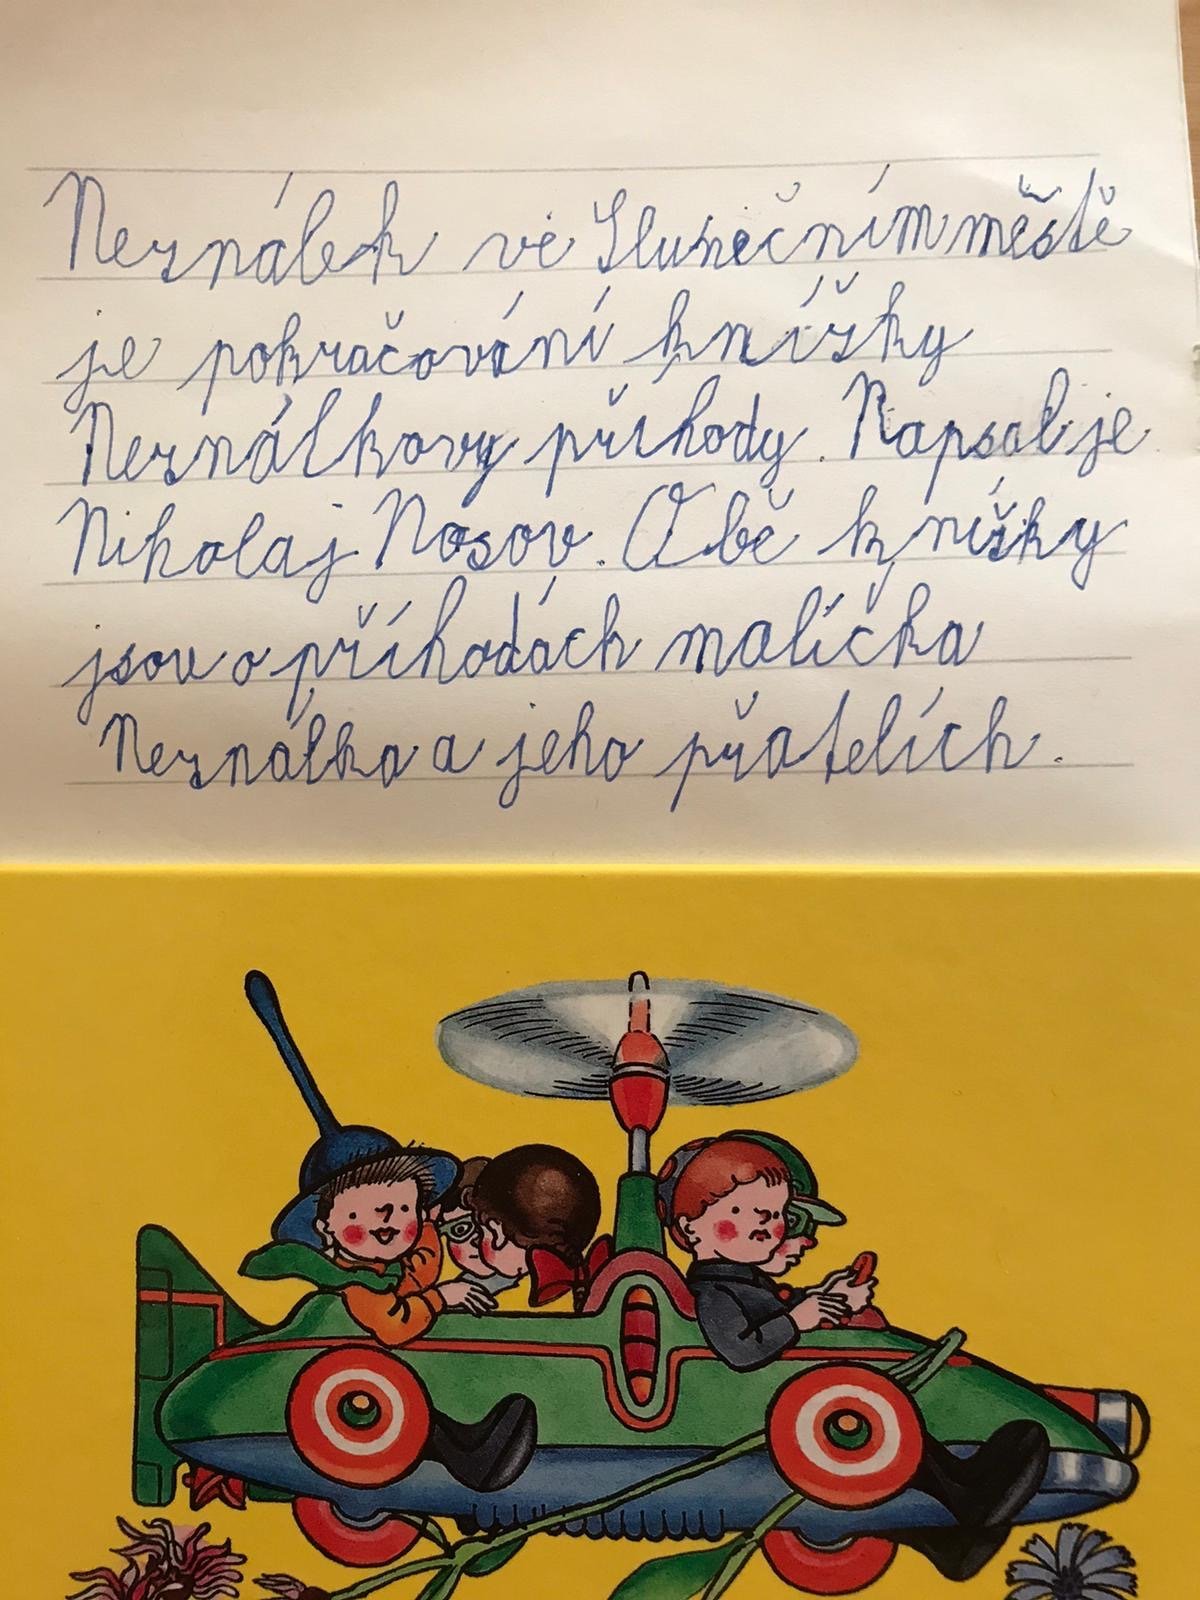 Neználek ve Slunečním městě
je pokračování knížky
Neználkovy příhody. Napsal je
Nikolaj Nosov. Obě knížky
jsou o příhodách malíčka
Neználka a jeho přatelích.